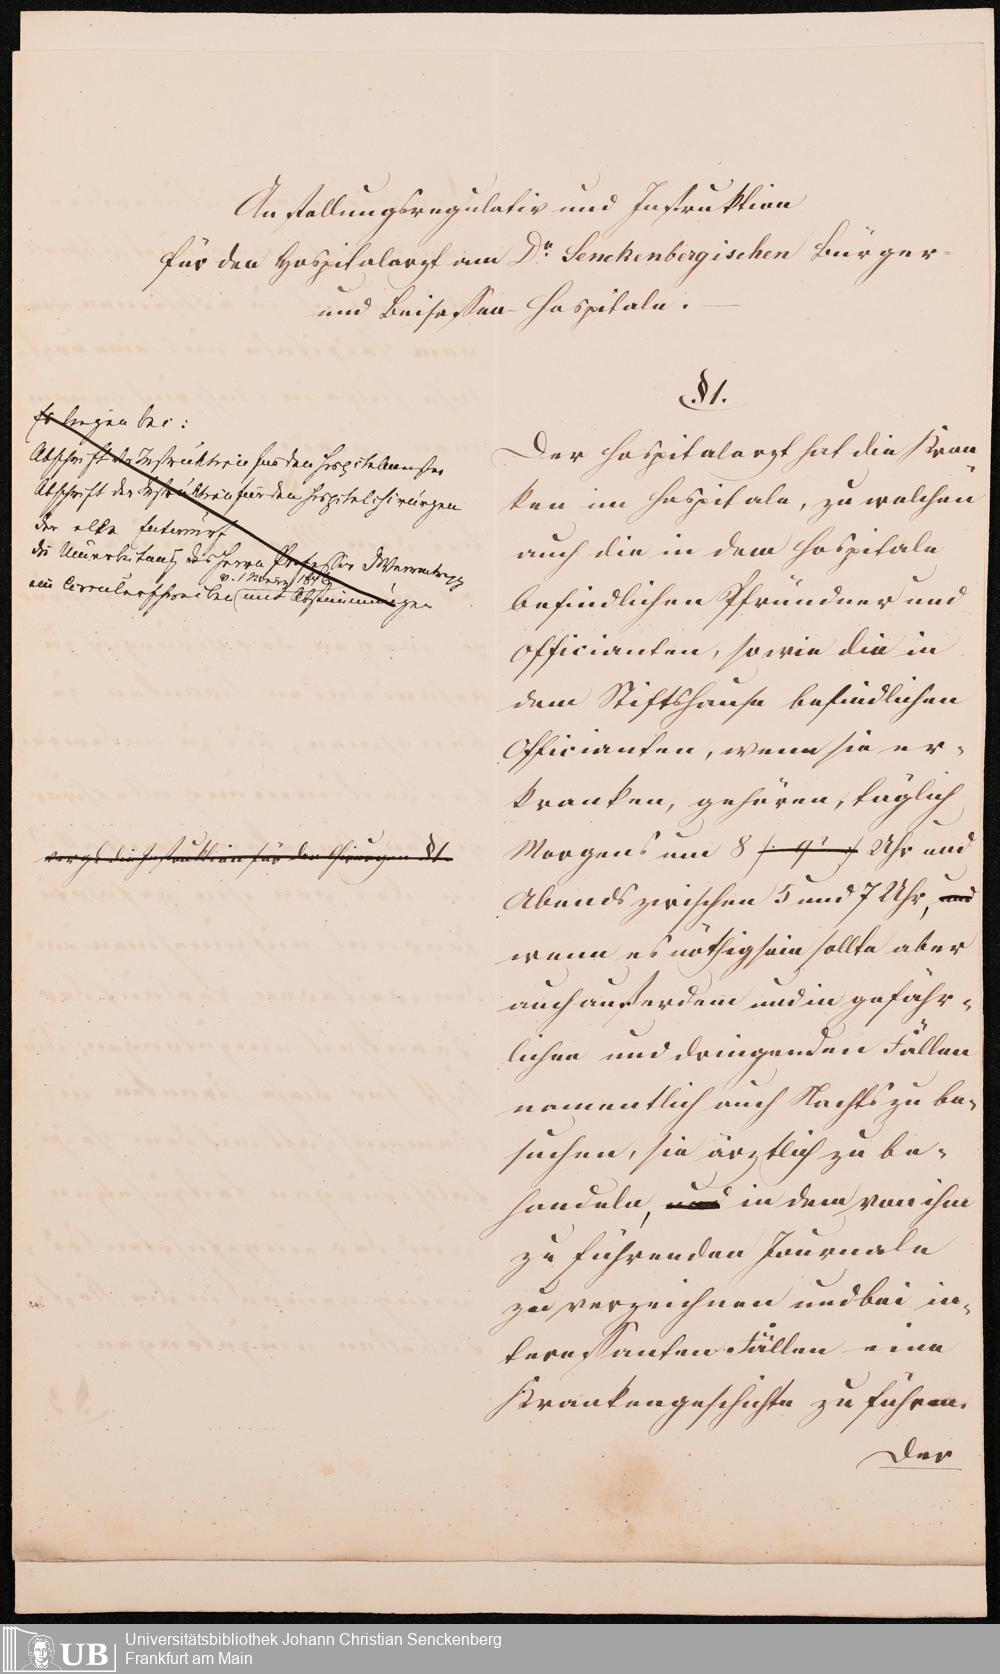 Anstellungsregulativ und Instruktion
für den Hospitalarzt am Dr. Senckenbergischen Bürger-
und Beisassen-Hospitale.
§ 1.
Es liegen bei:
Abschrift der Instruktion für den Hospitalmeister
Abschrift der Instruktion für den Hospitalchirurgen
der alte Entwurf
des Herrn Professor Dr Varrentrapp
ein Circularschreiben v. 1 März mit Abstimmungen
vergl. die Instruktion für den Chirurgen § 1.
Der Hospitalarzt hat die Kran-
ken im Hospitale, zu welchen
auch die in dem Hospitale
befindlichen Pfründner und
Officianten, sowie die in
dem Stiftshause befindlichen
Officianten, wenn sie er-
kranken, gehören, täglich
Morgens um 8 (: 9? :) Uhr und
Abends zwischen 5 und 7 Uhr, und
wenn es nöthig sein sollte aber
auch außerdem und in gefähr-
lichen und dringenden Fällen
namentlich auch Nachts zu be-
suchen, sie ärztlich zu be-
handeln, und in dem von ihm
zu führenden Journale
zu verzeichnen und bei in-
teressanten Fällen eine
Krankengeschichte zu führen.
Der
UB
Universitätsbibliothek Johann Christian Senckenberg
Frankfurt am Main